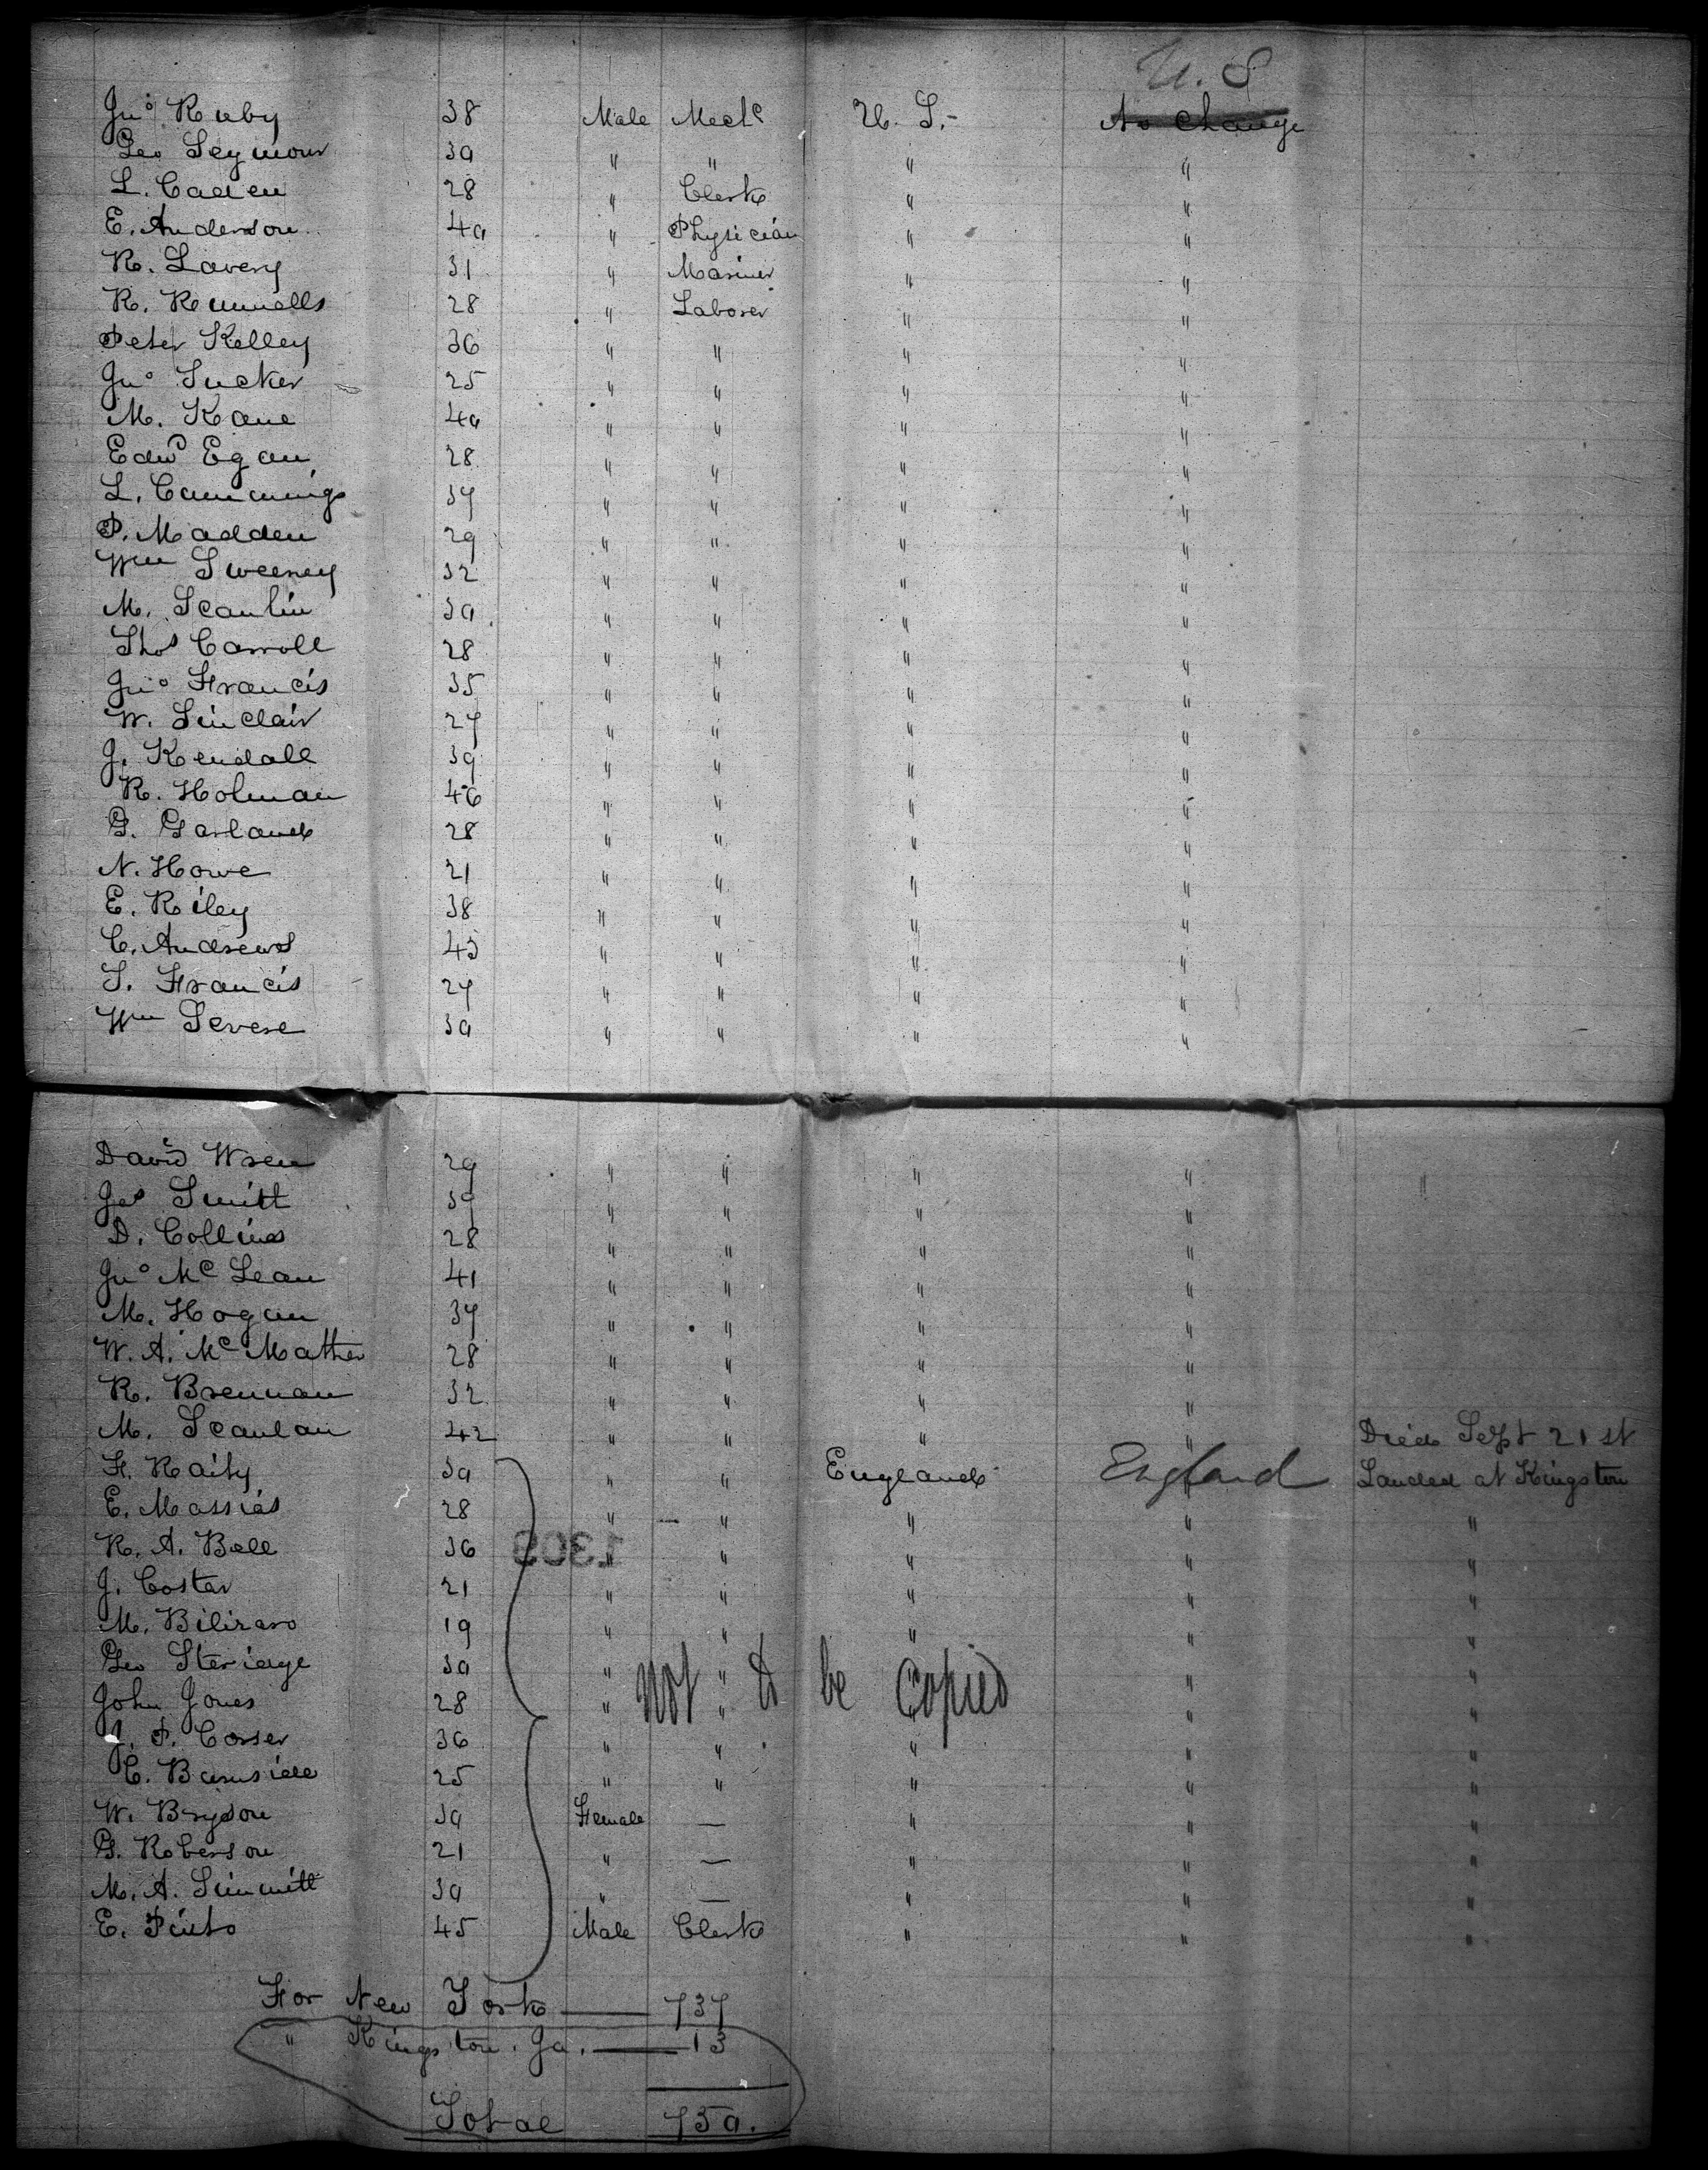 U. S
Jnº Ruby 38 Male Mechᶜ U. S.- No Change
Geo Seymour 30 " " " "
L. Caden 28 " Clerk " "
E. Anderson 40 " Physician " "
R. Lavery 31 " Mariner " "
R. Runnells 28 " Laborer " "
Peter Kelley 36 " " " "
Jnº Tucker 25 " " " "
M. Kane 40 " " " "
Edwᵈ Egan 28 " " " "
L. Cummings 37 " " " "
P. Madden 29 " " " "
Wᵐ Sweeney 32 " " " "
M. Scanlin 30 " " " "
Thoˢ Carroll 28 " " " "
Jnº Francis 35 " " " "
W. Sinclair 27 " " " "
J. Kendall 39 " " " "
R. Holman 46 " " " "
G. Garland 28 " " " "
N. Howe 21 " " " "
E. Riley 38 " " " "
C. Andrews 43 " " " "
T. Francis 27 " " " "
Wᵐ Severe 30 " " " "
David Wren 29 " " " "
Jaˢ Smitt 39 " " " "
D. Collins 28 " " " "
Jnº Mᶜ Lean 41 " " " "
M. Hogan 37 " " " "
W. A. Mᶜ Mather 28 " " " "
R. Brennan 32 " " " "
M. Scanlan 42 " " " " Died Sept 21 st
F. Raity 30 " " England England Landed at Kingston
E. Massias 28 " " " " "
R. A. Bell 36 " " " " "
1303
J. Costar 21 " " " " "
M. Biliravo 19 " " " " "
Geo Steridge 30 " " " " "
Not to be Copied
John Jones 28 " " " " "
P. Corser 36 " " " " "
C. Burnside 25 " " " " "
W. Brydon 30 Female — " " "
G. Roberson 21 " — " " "
M. A. Simmitt 30 " — " " "
E. Pinto 45 Male Clerk " " "
For New York — 737
" Kingston. Ja. — 13
Total 750.